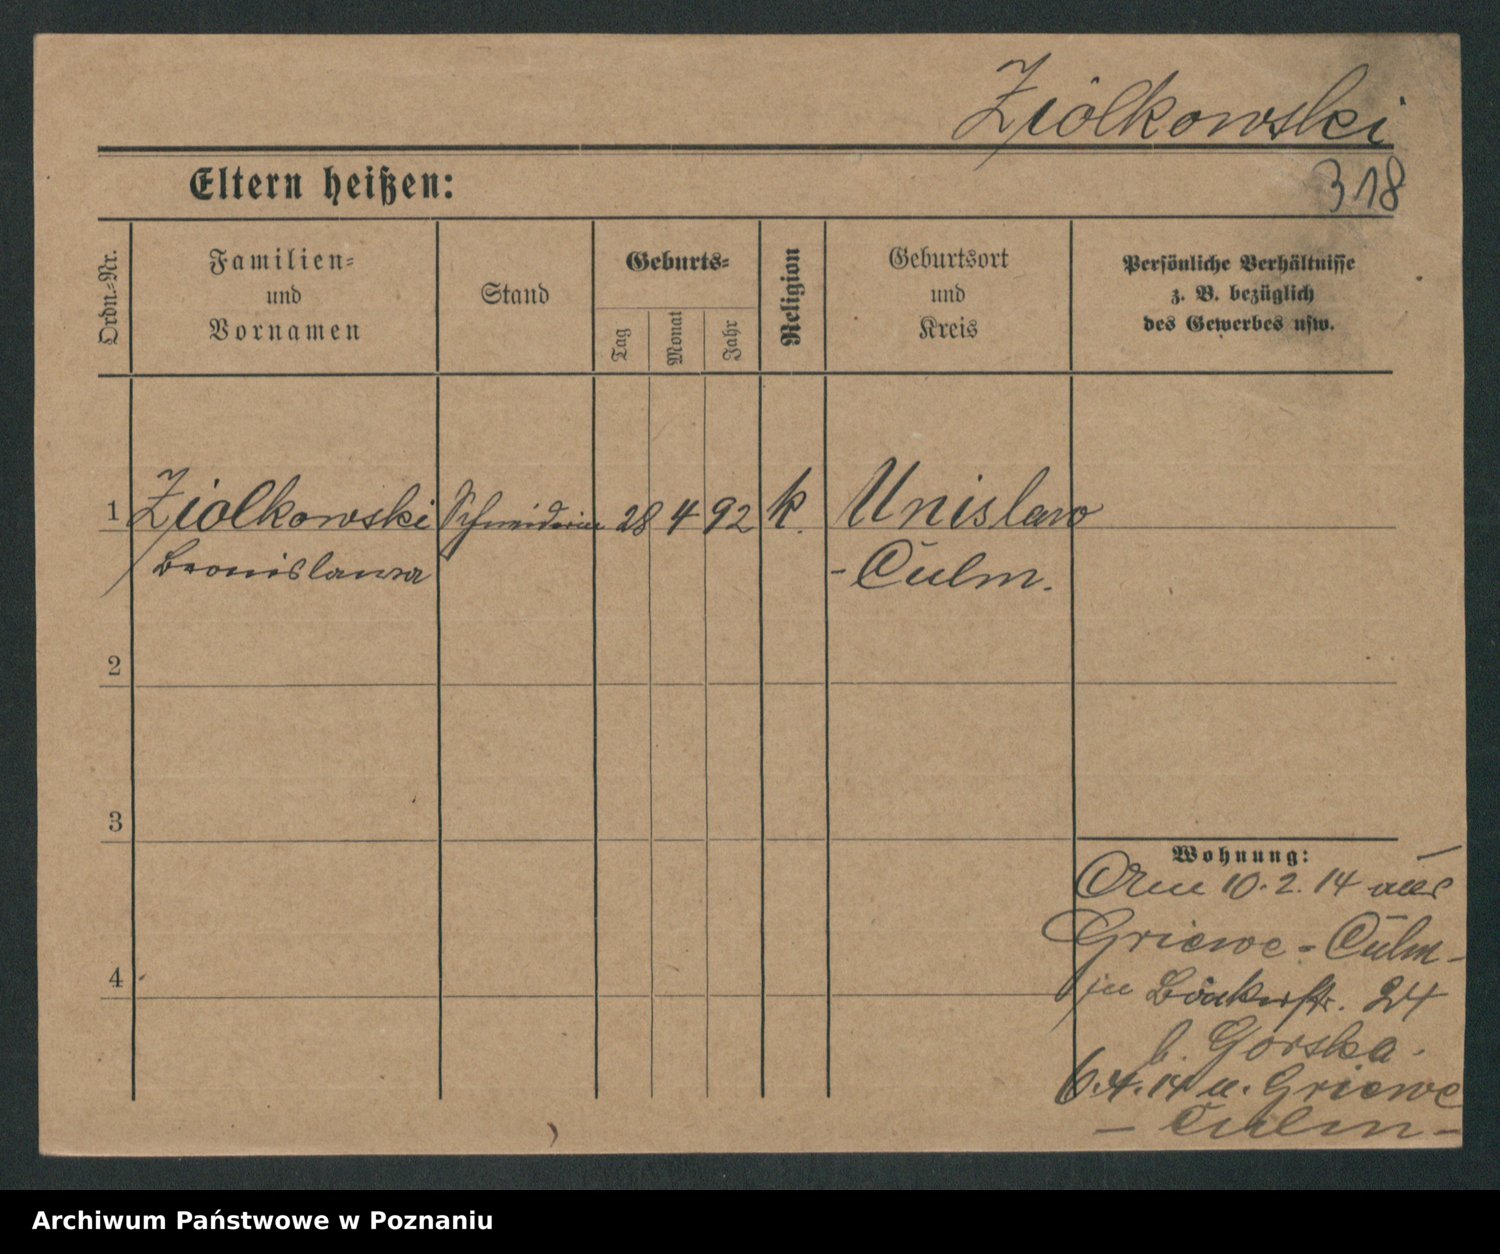 Ziólkowski
318
Eltern heißen:
Ordn.-Nr.
Familien-
und
Vornamen
Stand
Geburts-
Tag
Monat
Jahr
Religion
Geburtsort
und
Kreis
Persönliche Verhältnisse
z. B. bezüglich
des Gewerbes usw.
1 Ziolkowski Schneiderin 28 4 92 k. Unislaw
Bronislawa - Culm.
2
3
4
Wohnung:
10.2.14 aus
Griewe - Culm -
in Bäckerstr. 24
b. Gorska.
6.4.14 n. Griewe
- Culm -
Archiwum Państwowe w Poznaniu